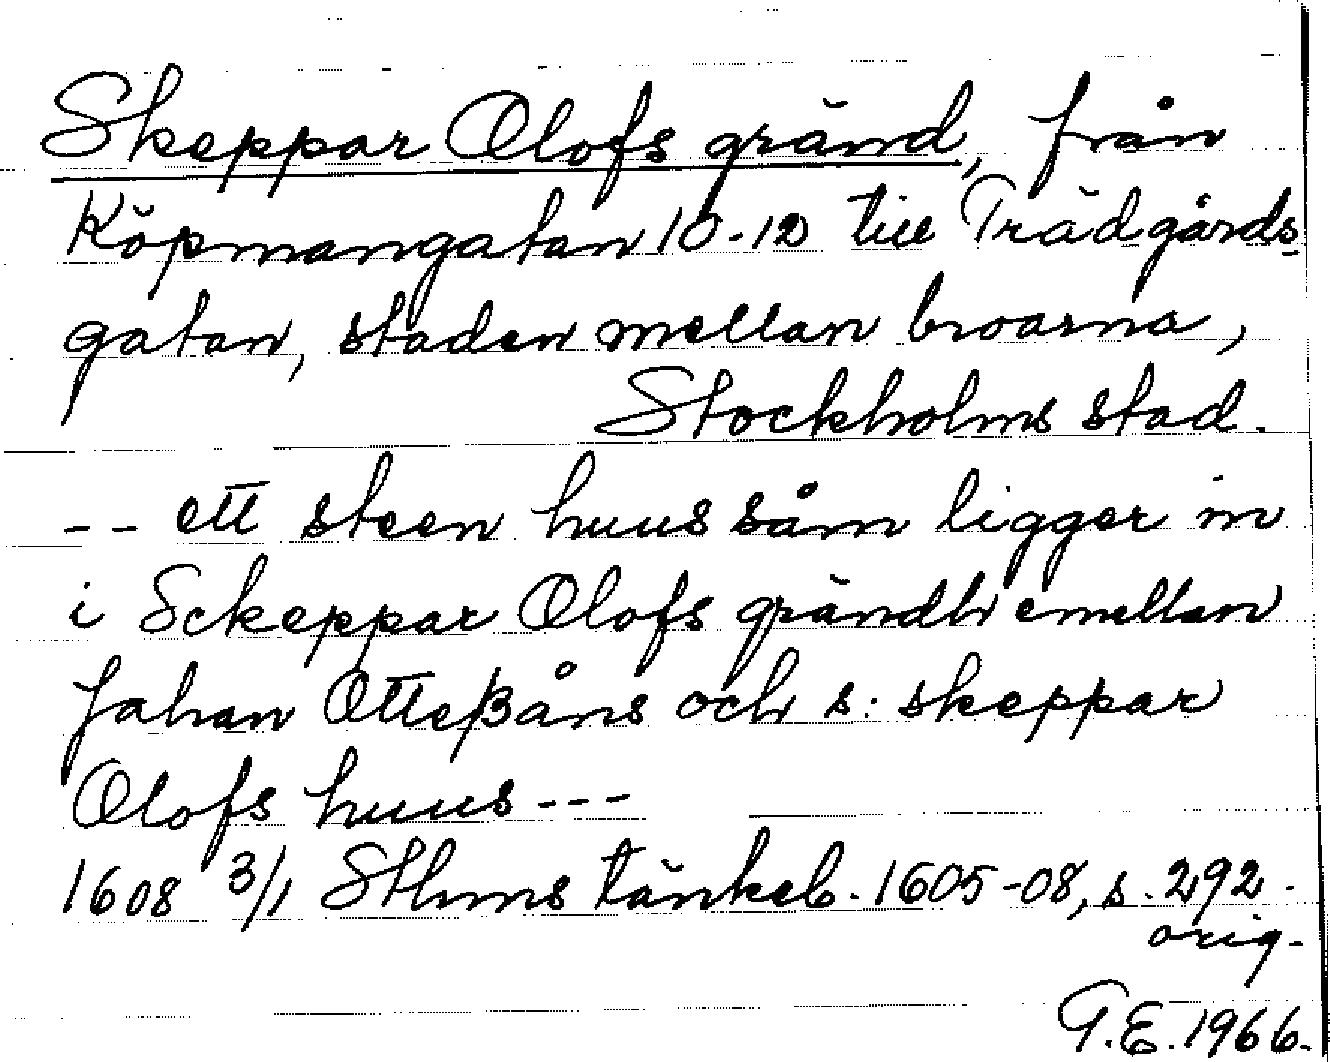 Skeppar Olofs gränd, från
Köpmangatan 10-12 till Trädgårds-
gatan, staden mellan broarna,
Stockholms stad.
-- ett steen huus såm ligger in
i Sckeppar Olofs grändh emellan
Johan Otteßåns och s: skeppar
Olofs huus ---
1608 3/1 Sthms tänkeb. 1605-08, s. 292.
orig.
G.E. 1966.